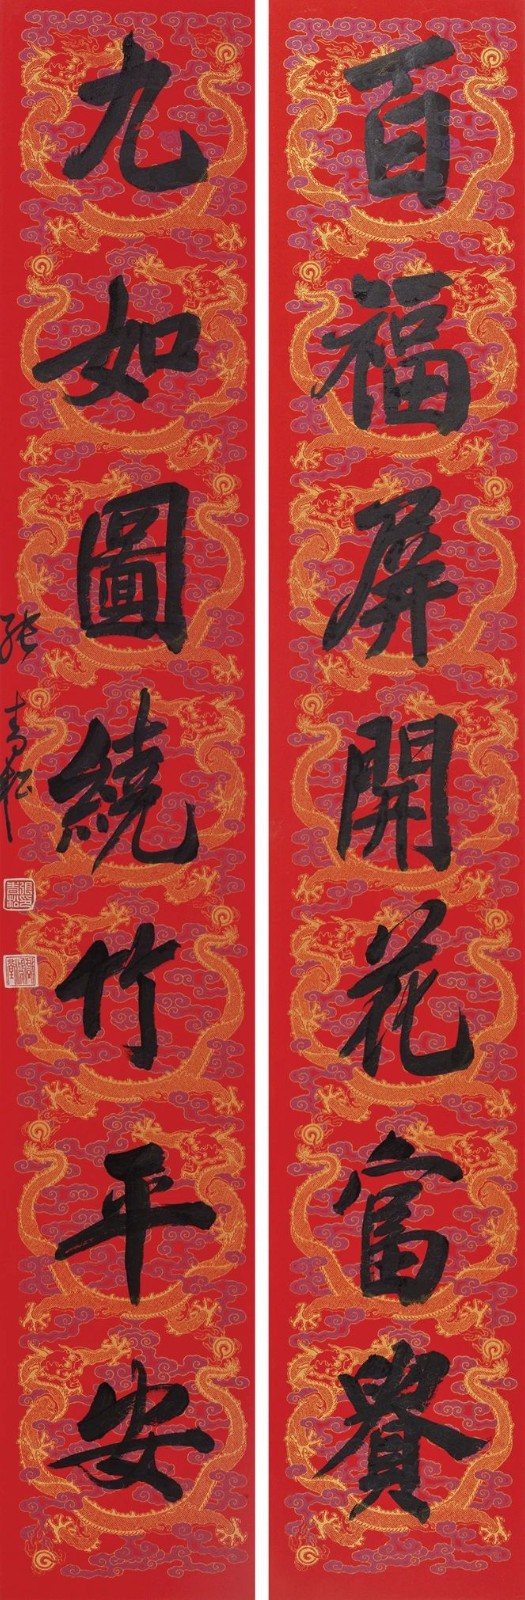 百福屏開花富貴
九如圖繞竹平安
張青松